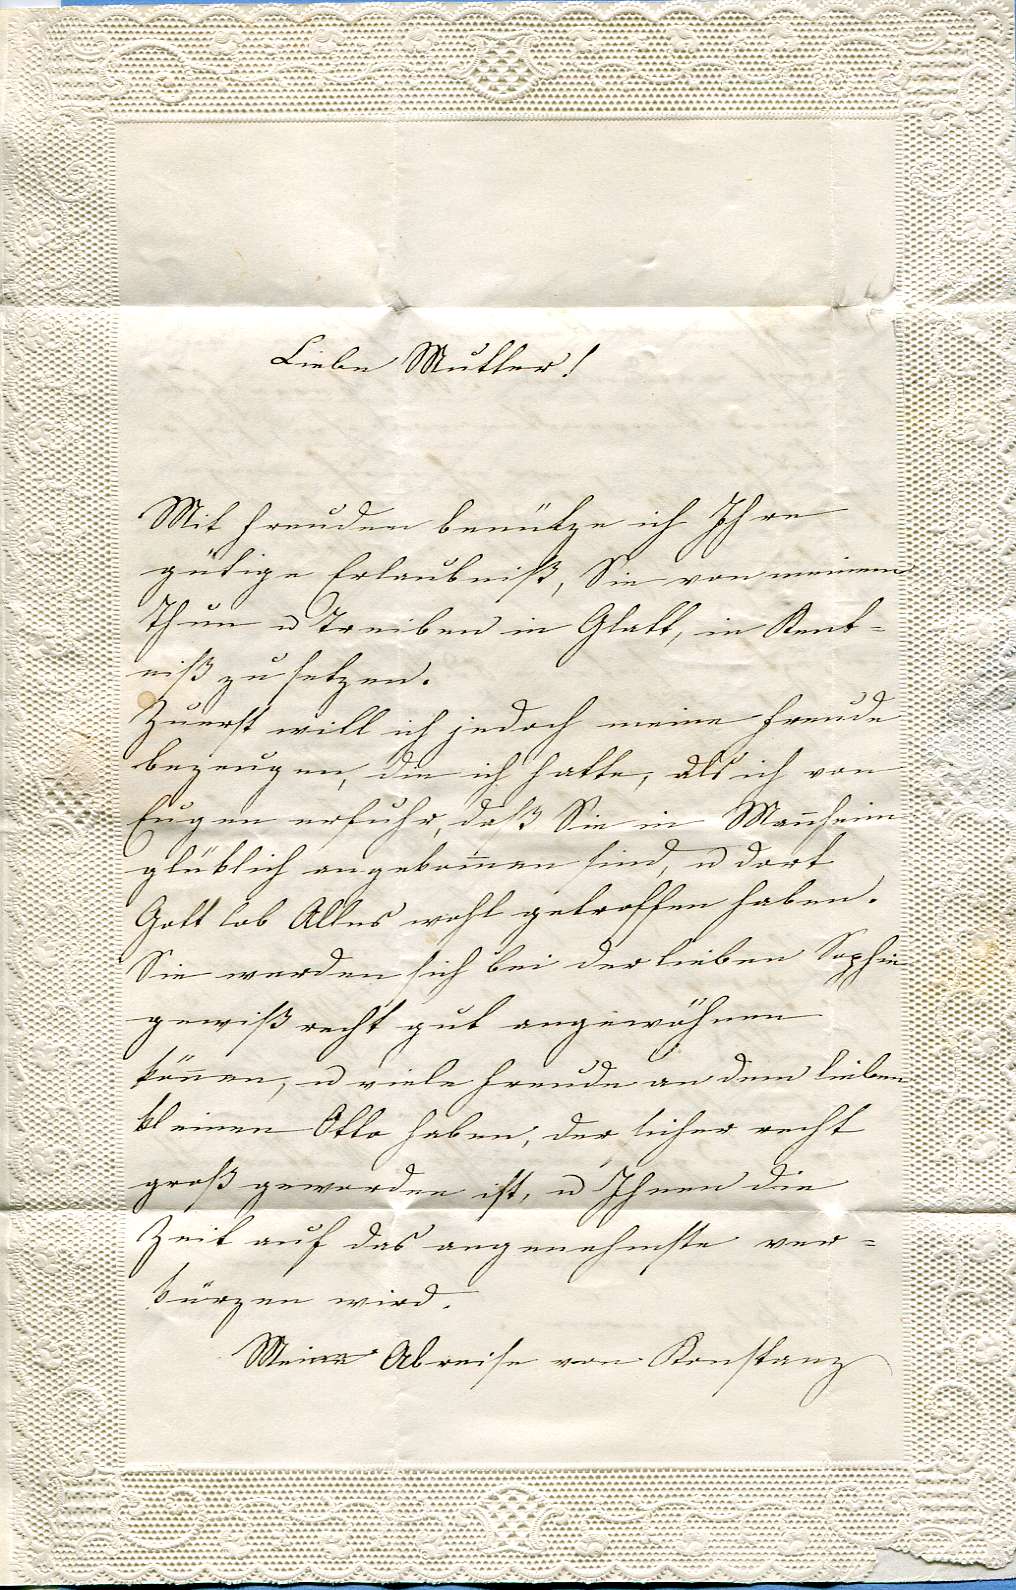 Liebe Mutter!
Mit Freuden benütze ich Ihre
gütige Erlaubniß, Sie von meinem
Thun u Treiben in Glatt, in Kent=
niß zu setzen.
Zuerst will ich jedoch meine Freude
bezeugen, die ich hatte, als ich von
Eugen erfuhr, daß Sie in Man̄heim
glüklich angekom̄en sind, u dort
Gott lob Alles wohl getroffen haben.
Sie werden sich bei der lieben Sophie
gewiß recht gut angewöhnen
kön̄en, u viele Freude an dem lieben
kleinen Otto haben, der sicher recht
groß geworden ist, u Ihnen die
Zeit auf das angenehmste ver=
kürzen wird.
Meine Abreise von Konstanz